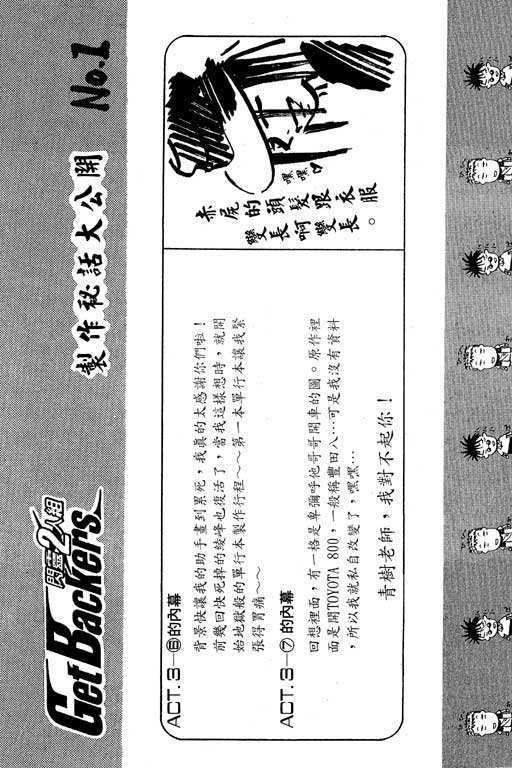 閃靈2人組
GetBackers
製作秘話大公開 No.1
ACT.3—⑥的內幕
背景快讓我的助手畫到累死，我真的太感謝你們啦！
前幾回快死掉的綾峰也復活了，當我這樣想時，就開
始地獄般的單行本製作行程～～第一本單行本讓我緊
張得胃痛～～
ACT.3—⑦的內幕
回想裡面，有一格是卑彌呼他哥哥開車的圖。原作裡
面是開TOYOTA 800，一般稱豐田八…可是我沒有資料
，所以我就私自改變了，嘿嘿…
青樹老師，我對不起你！
赤屍的頭髮跟衣服
變長啊變長。
嘿嘿♡